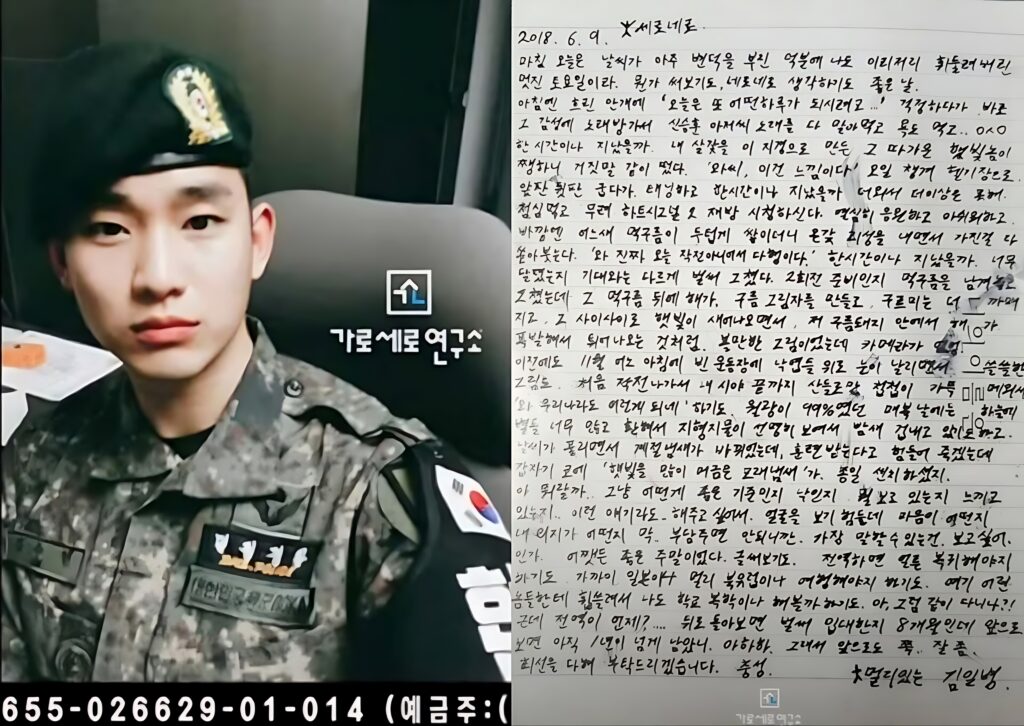 가로세로연구소
대한민국육군
655-026629-01-014 (예금주:(
★세로네로.
2018. 6. 9.
마침 오늘은 날씨가 아주 변덕을 부린 덕분에 나도 이리저리 휘둘려버린
멋진 토요일이라. 뭔가 써보기도, 네로네로 생각하기도 좋은 날.
아침엔 흐린 안개에 '오늘은 또 어떤하루가 되시려고...' 걱정하다가 바로
그 감성에 노래방가서 신승훈 아저씨 노래를 다 말아먹고 목도 먹고.. ㅇㅅㅇ
한시간이나 지났을까. 내 살갗을 이 지경으로 만든 그 따가운 햇빛놈이
쨍하니 거짓말 같이 떴다. '와씨, 이건 느낌이다' 오일 챙겨 헬기장으로.
앞판 뒷판 굽다가 태닝하고 한시간이나 지났을까 더워서 더이상은 못해.
점심먹고 무려 하트시그널 2 재방 시청하신다. 열심히 응원하고 아쉬워하고.
바깥엔 어느새 먹구름이 두텁게 쌓이더니 온갖 괴성을 내면서 가진걸 다
쏟아붓는다. '와 진짜 오늘 작전아니어서 다행이다.' 한시간이나 지났을까. 너무
달렸는지 기대와는 다르게 벌써 그쳤다. 2회전 준비인지 먹구름은 남겨놓고
그쳤는데 그 먹구름 뒤에 해가. 구름 그림자를 만들고, 구르미는 더 까매
지고. 그 사이사이로 햇빛이 새어나오면서, 저 구름돼지 안에서 해가
폭발해서 튀어나오는 것처럼. 볼만한 그림이었는데 카메라가
이전에도 11월 어느 아침에 빈 운동장에 낙엽들 위로 눈이 날리면서 쓸쓸한
그림도. 처음 작전나가서 내 시야 끝까지 산들로만 첩첩이 가득 메워서
'와 우리나라도 이렇게 되네' 하기도. 월광이 99%였던 매복날에는 하늘에
별들 너무 많고 환해서 지형지물이 선명히 보여서 밤새 겁내고 있기도하고.
날씨가 풀리면서 계절냄새가 바뀌었는데, 훈련받는다고 힘들어 죽겠는데
갑자기 코에 '햇빛을 많이 머금은 모래냄새'가. 종일 센치하셨지.
아 뭐랄까.. 그냥 어떻게 좋은 기준인지 낙인지 뭘 보고 있는지 느끼고
있는지.. 이런 얘기라도.. 해주고싶어서. 얼굴을 보기 힘든데 마음이 어떤지
내 의지가 어떤지 막.. 부담주면 안되니깐. 가장 말할수있는건. 보고싶어.
인가. 어쨌든 좋은 주말이었다. 글써보기도. 전역하면 얼른 복귀해야지
하기도. 가까이 일본이나 멀리 북유럽이나 여행해야지 하기도. 여기 어린
놈들한테 휩쓸려서 나도 학교 복학이나 해볼까하기도. 아, 그럼 같이 다니나?!
근데 전역이 언제?.... 뒤로 돌아보면 벌써 입대한지 8개월인데 앞으로
보면 아직 1년이 넘게 남았니. 아하하. 그래서 앞으로도 쭉.. 잘 좀.
최선을 다해 부탁드리겠습니다. 충성
★멀리있는 김일병.
가로세로연구소